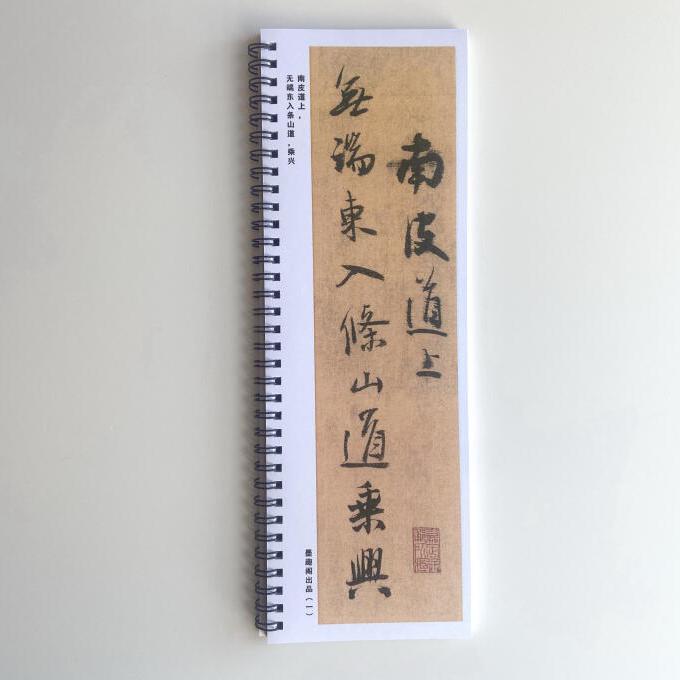 南皮道上
無端東入條山道乘興
南皮道上，
无端东入条山道，乘兴
墨趣阁出品（一）